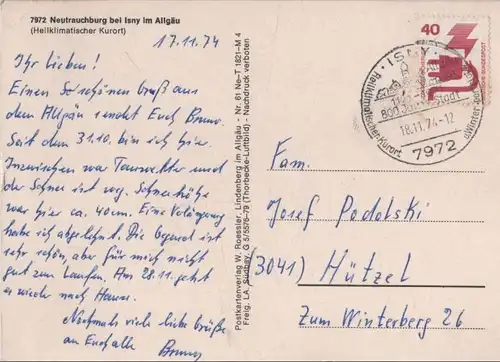 7972 Neutrauchburg bei Isny im Allgäu
(Heilklimatischer Kurort)
17.11.74
Ihr Lieben!
Einen schönen Gruß aus
dem Allgäu sendet Euch Bruno.
Seit dem 31.10. bin ich hier.
Inzwischen war Tauwetter und
der Schnee ist weg. Schneehöhe
war hier ca. 40cm. Eine Verlängerung
habe ich abgelehnt. Die Gegend ist
sehr schön, aber für mich nicht
gut zum Laufen. Am 28.11. geht
es wieder nach Hause.
Nochmals viele liebe Grüße
an Euch alle
Bruno
Postkartenverlag W. Roessler, Lindenberg im Allgäu - Nr. 61 Ne-T 1821-M 4
Freig. LA. Südbay. G 5/5576-79 (Thorbecke-Luftbild) - Nachdruck verboten
40
ISNY
Heilklimatischer Kurort
18.11.74-12
7972
Fam.
Josef Podolski
(3041) Hützel
Zum Winterberg 26